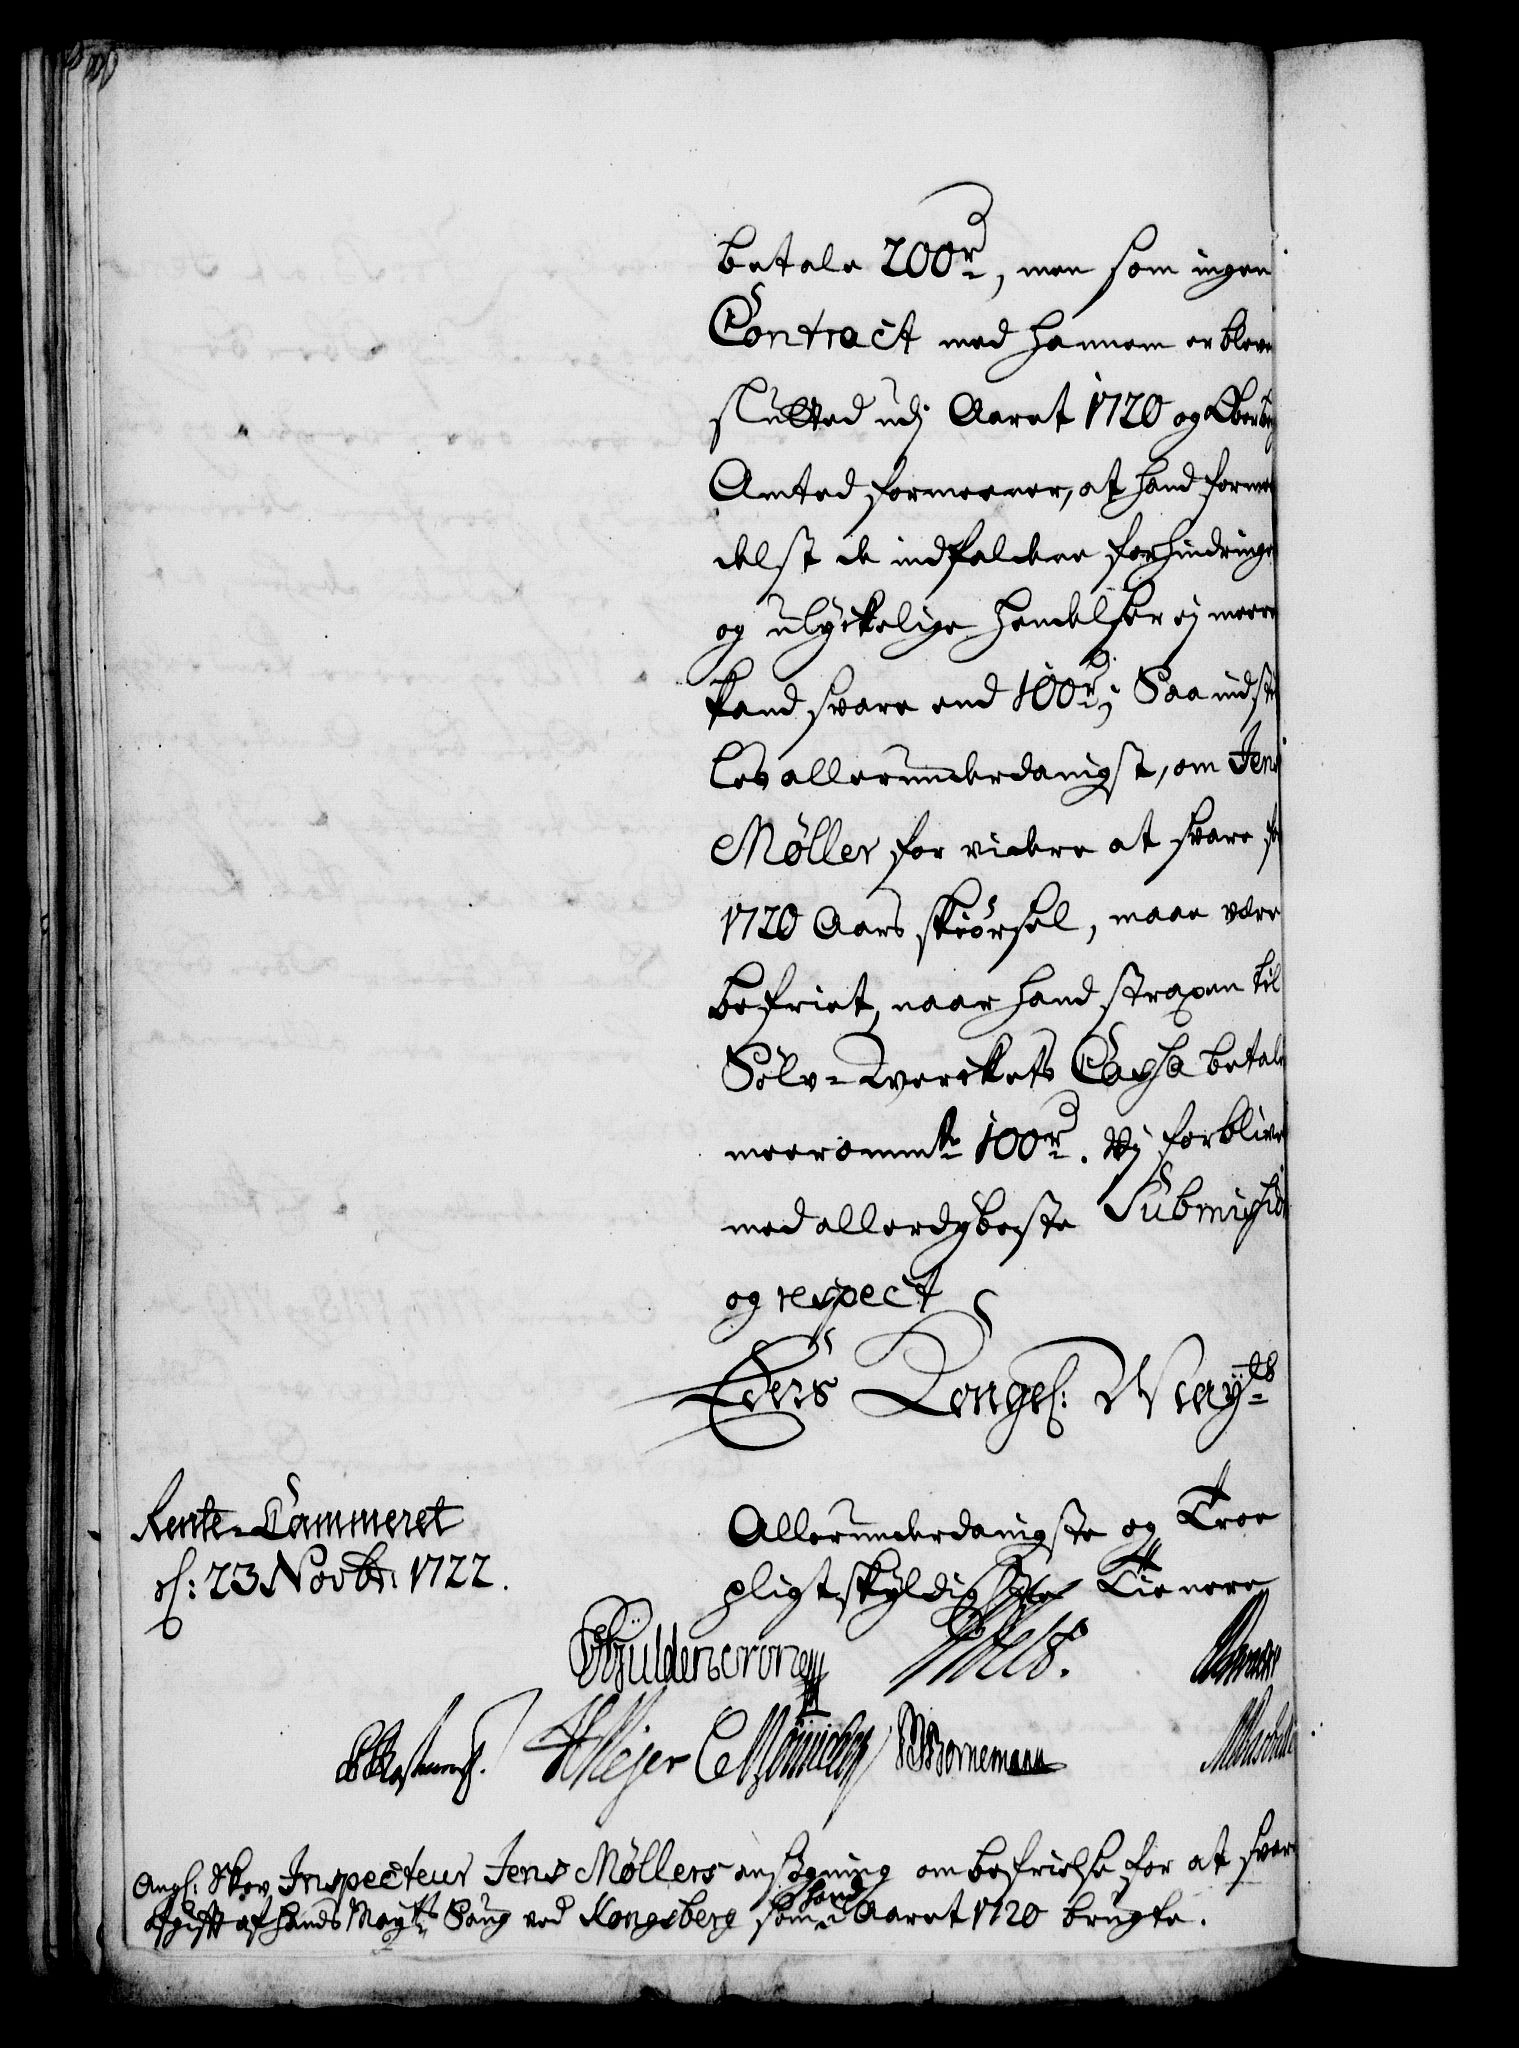 betale 200 rd, men som ingen
Contract med hannem er bleve
slutted udj Aaret 1720 og Ober berg
Amted formeener, at hand forme
delst de indfaldne forhindringe
og ulyckelige hendelser ej meere
kand svare end 100 rd; Saa indstil
les allerunderdanigst, om Jens
Møller for videre at svare for
1720 Aars skiørsel, maae være
befriet, naar hand straxen til
Sølv-Werckets Cassa betale
meerommte 100 rd. Wj forblive
med allerdybeste Submission
og respect
Eders Kongel: Mayts
Rente-Cammeret
d: 23 Novbr: 1722.
Allerunderdanigste og Troe
pligtskyldigste Tienere
Güldencrone
HMejer
Bornemann
Ang: Skov Inspecteur Jens Møllers ansøgning om befrielse for at svare
afgift af hands Mayts Saug ved Kongsberg som hand i Aaret 1720 brugte.